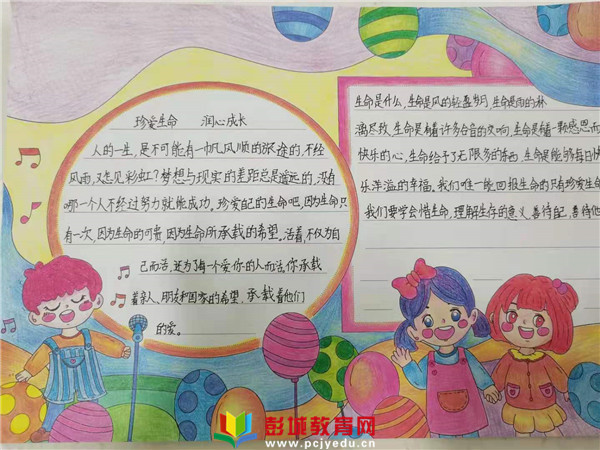 珍爱生命 润心成长
人的一生，是不可能有一帆风顺的旅途的，不经
风雨，又怎见彩虹？梦想与现实的差距总是遥远的，没有
哪一个人不经过努力就能成功。珍爱自己的生命吧，因为生命只
有一次，因为生命的可贵，因为生命所承载的希望。活着，不仅为自
己而活，还为了每一个爱你的人而活，你承载
着亲人、朋友和国家的希望，承载着他们
的爱。
生命是什么，生命是风的轻盈岁月，生命是雨的淋
漓尽致，生命是有着许多合音的交响，生命是有着一颗感恩而
快乐的心，生命给予了无限多的东西，生命是能够每日快
乐洋溢的幸福。我们唯一能回报生命的只有珍爱生命
我们要学会惜生命，理解生存的意义，善待自己，善待他
彭城教育网
www.pcjyedu.cn